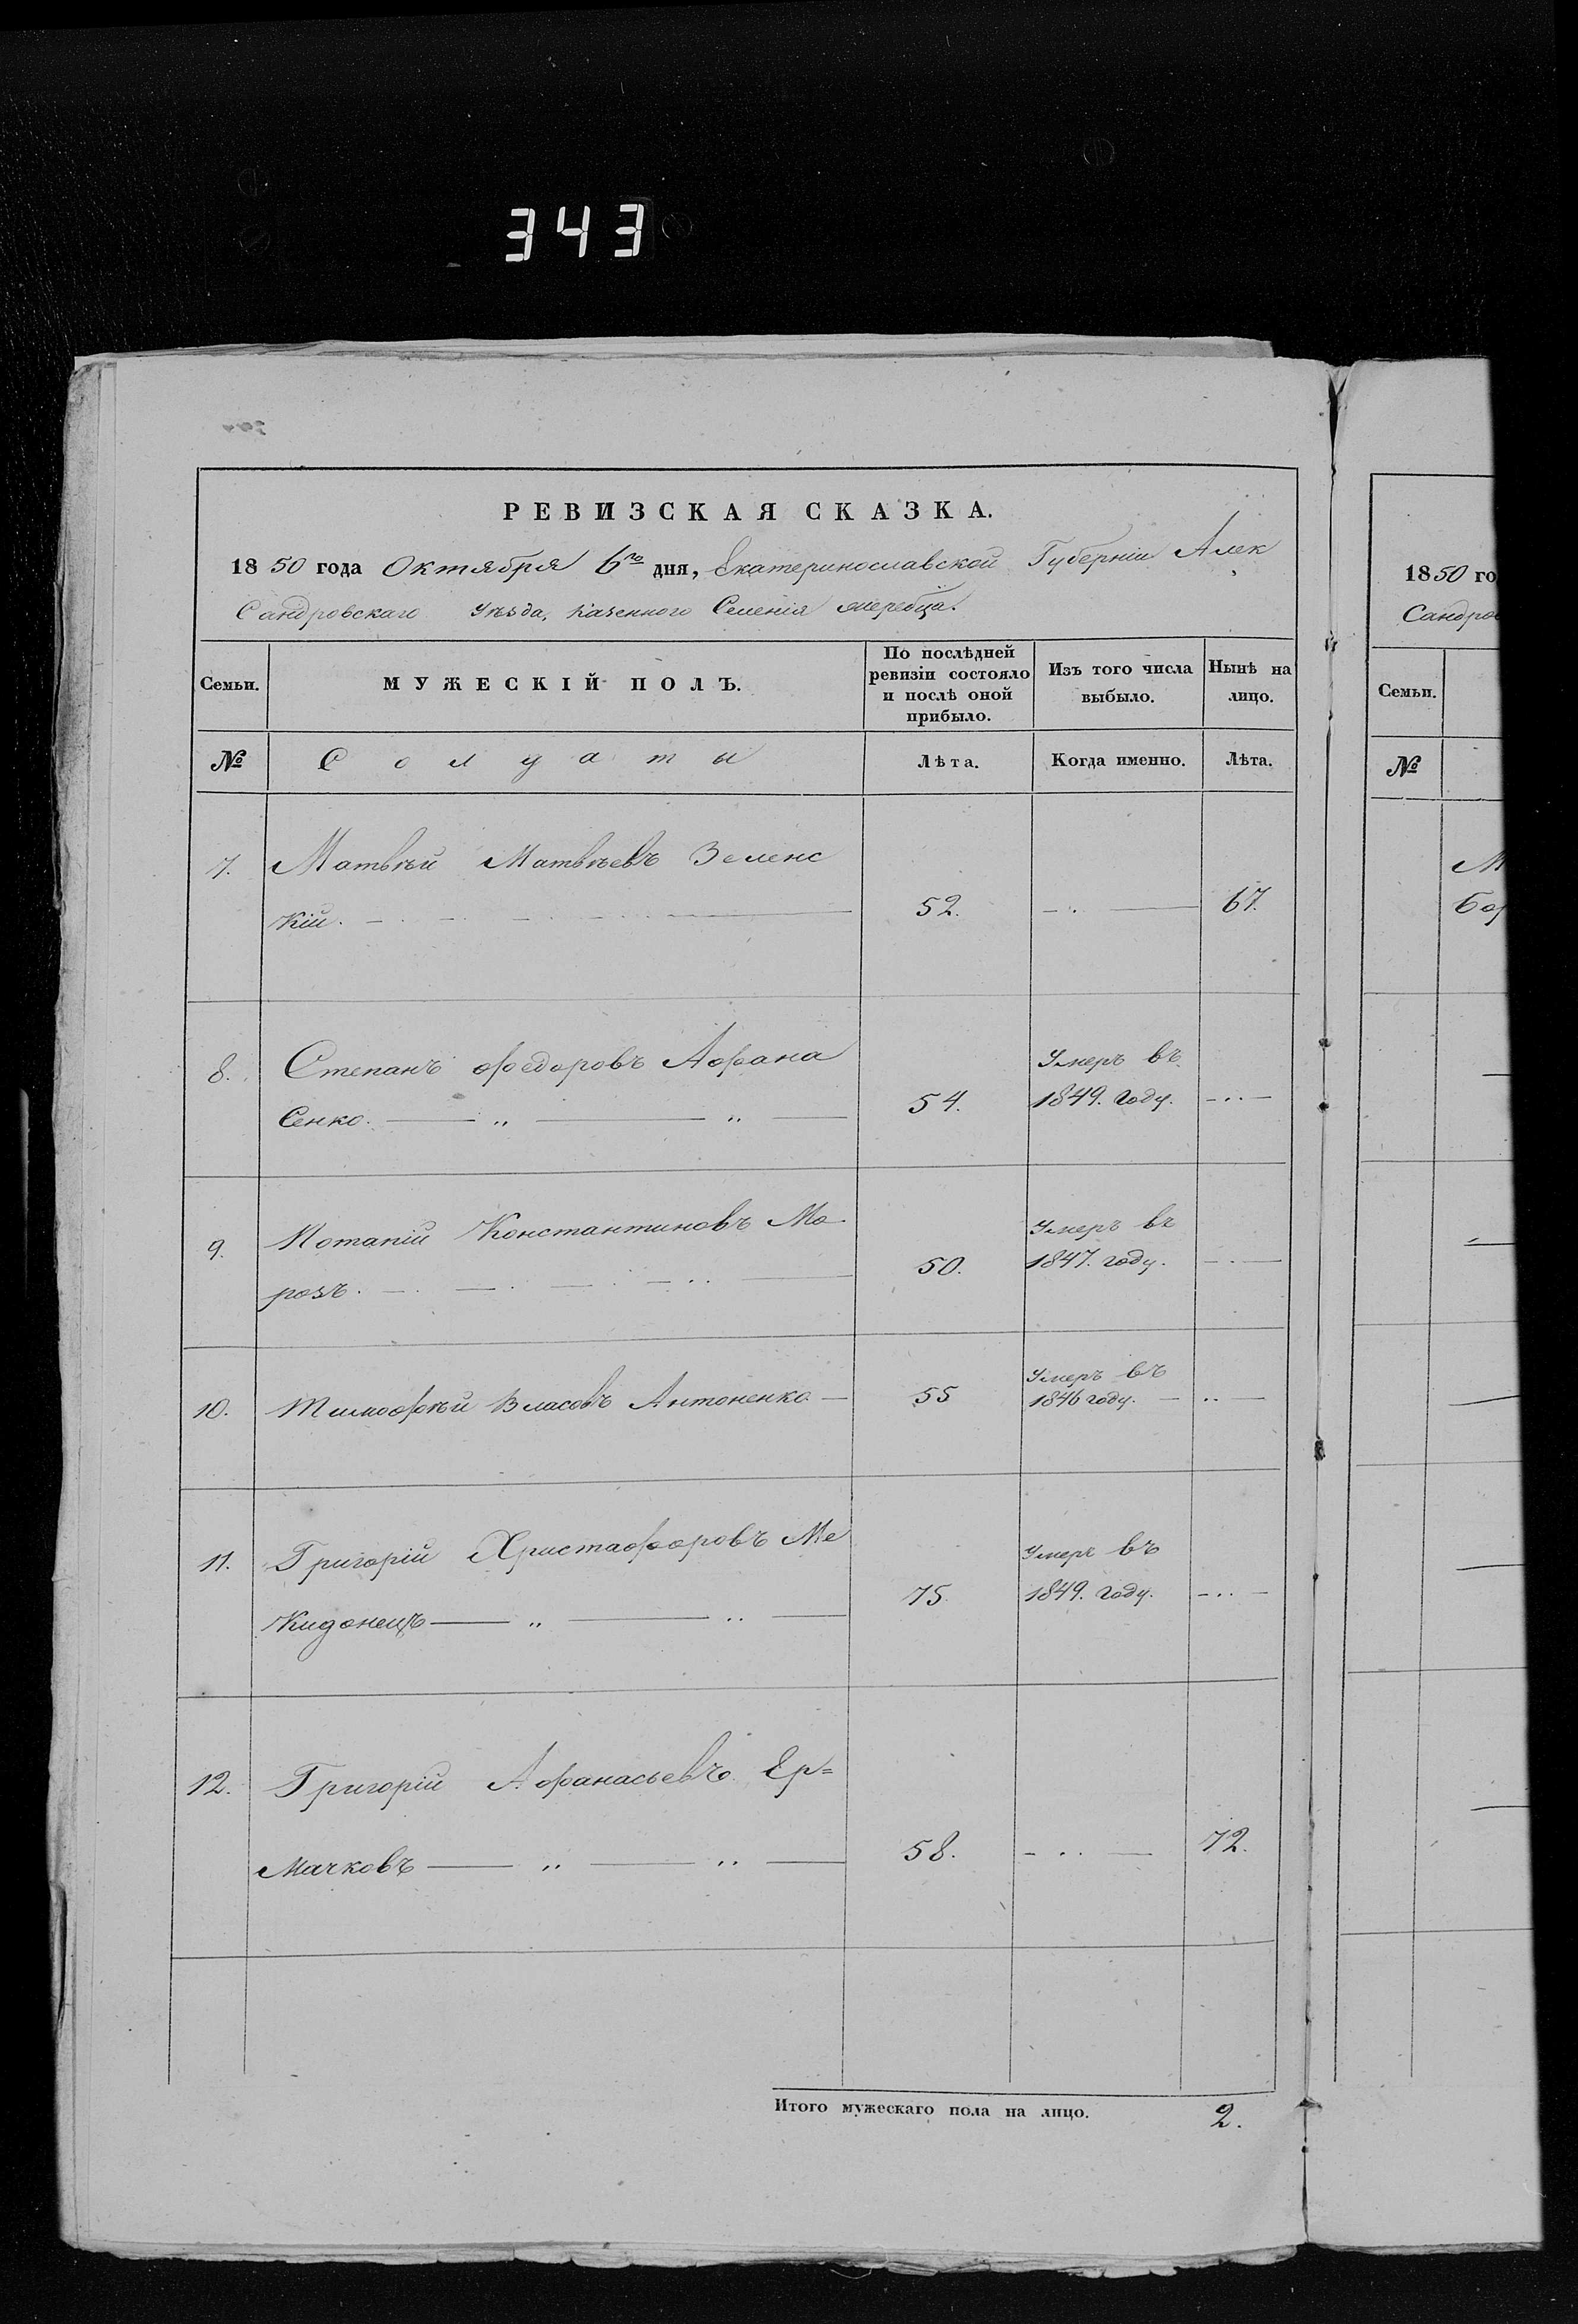 343
РЕВИЗСКАЯ СКАЗКА.
1850 года Октября 6го дня, Екатеринославской Губерніи Алек
Сандровскаго Уѣзда, Казенного Селенія жеребца.
Семьи.
МУЖЕСКІЙ ПОЛЪ.
По послѣдней
ревизіи состояло
и послѣ оной
прибыло.
Изъ того числа
выбыло.
Нынѣ на
лицо.
№
Солдаты
Лѣта.
Когда именно.
Лѣта.
7. Матвѣй Матвѣевъ Зеленс
кій. 52. 67.
8. Степанъ Федоровъ Афана
Сенко. 54. Умеръ въ
1849. году.
9. Потапій Константиновъ Мо
розъ. 50. Умеръ въ
1847. году.
10. Тимофѣй Власовъ Антоненко 55 Умеръ въ
1846 году.
11. Григорій Христафоровъ Ме
Кидонецъ 75. Умеръ въ
1849. году.
12. Григорій Афанасьевъ Ер=
Мачковъ 58. 72.
Итого мужескаго пола на лицо. 2.
1850 го
Сандров
Семьи.
№
М
Бор